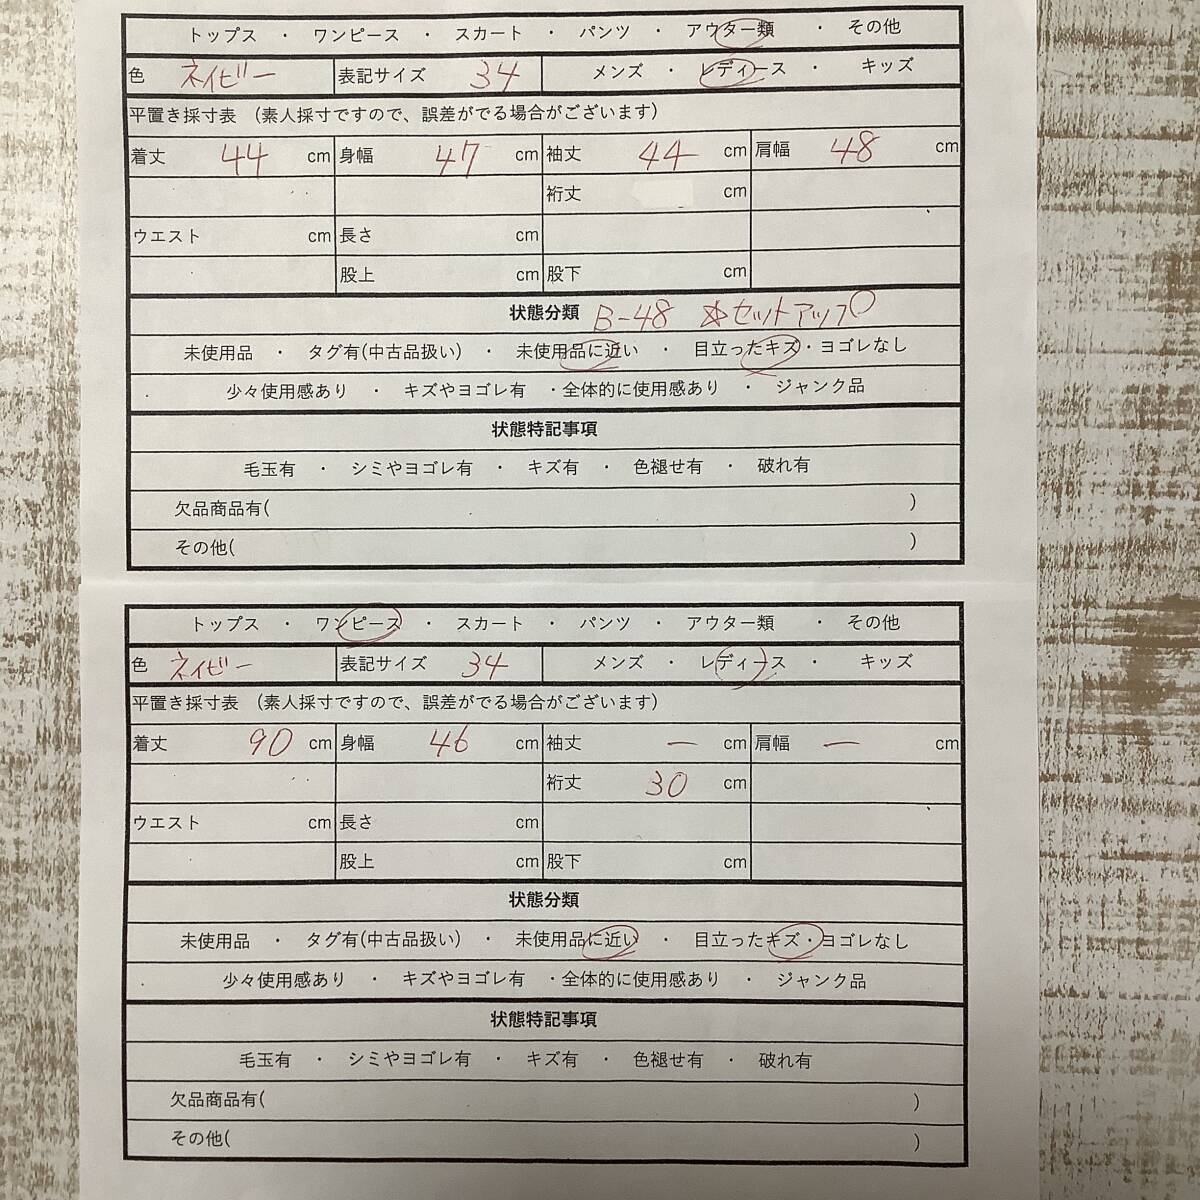 トップス ・ ワンピース ・ スカート ・ パンツ ・ アウター類 ・ その他
色 ネイビー 表記サイズ 34 メンズ ・ レディース ・ キッズ
平置き採寸表 (素人採寸ですので、誤差がでる場合がございます)
着丈 44 cm 身幅 47 cm 袖丈 44 cm 肩幅 48 cm
裄丈 cm
ウエスト cm 長さ cm
股上 cm 股下 cm
状態分類 B-48 ☆セットアップ
未使用品 ・ タグ有(中古品扱い) ・ 未使用品に近い ・ 目立ったキズ・ヨゴレなし
少々使用感あり ・ キズやヨゴレ有 ・全体的に使用感あり ・ ジャンク品
状態特記事項
毛玉有 ・ シミやヨゴレ有 ・ キズ有 ・ 色褪せ有 ・ 破れ有
欠品商品有( )
その他( )
トップス ・ ワンピース ・ スカート ・ パンツ ・ アウター類 ・ その他
色 ネイビー 表記サイズ 34 メンズ ・ レディース ・ キッズ
平置き採寸表 (素人採寸ですので、誤差がでる場合がございます)
着丈 90 cm 身幅 46 cm 袖丈 ー cm 肩幅 ー cm
裄丈 30 cm
ウエスト cm 長さ cm
股上 cm 股下 cm
状態分類
未使用品 ・ タグ有(中古品扱い) ・ 未使用品に近い ・ 目立ったキズ・ヨゴレなし
少々使用感あり ・ キズやヨゴレ有 ・全体的に使用感あり ・ ジャンク品
状態特記事項
毛玉有 ・ シミやヨゴレ有 ・ キズ有 ・ 色褪せ有 ・ 破れ有
欠品商品有( )
その他( )